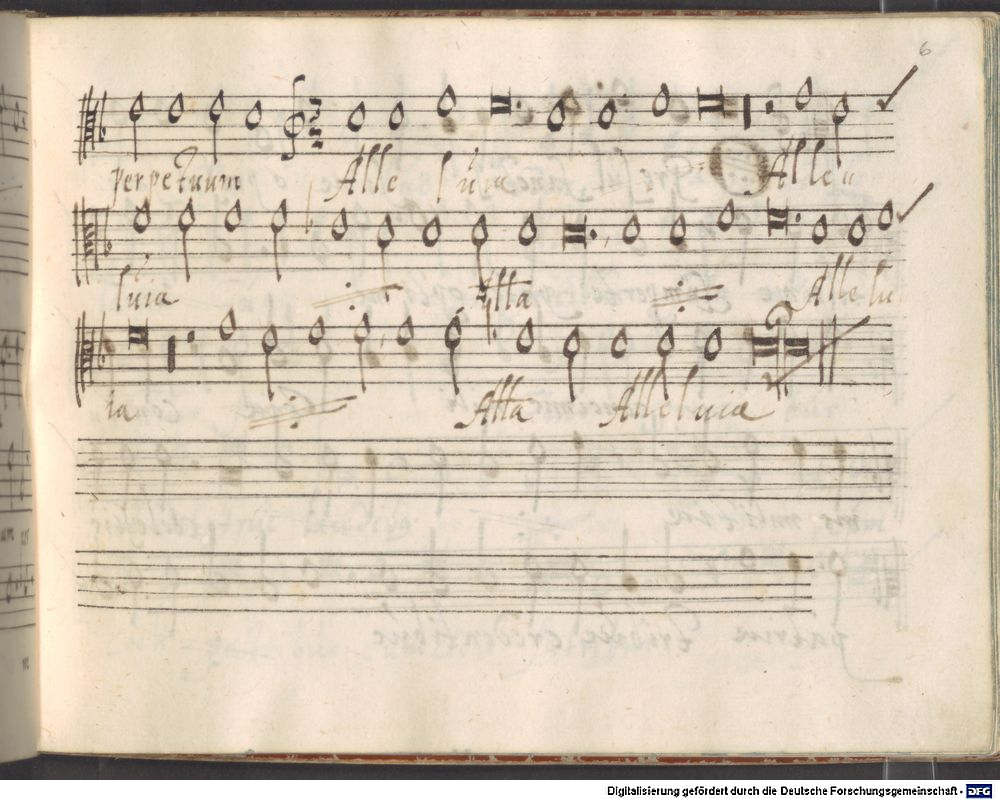 6
perpetuum Alle luia Allelu
luia Alla Allelu
ia Alla Alleluia
Digitalisierung gefördert durch die Deutsche Forschungsgemeinschaft - DFG